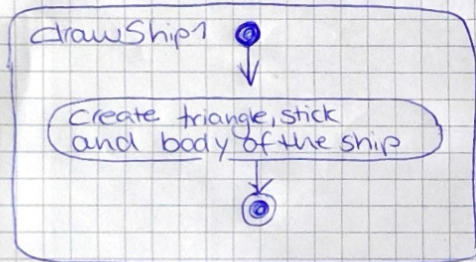 drawShip1
Create triangle, stick
and body of the ship